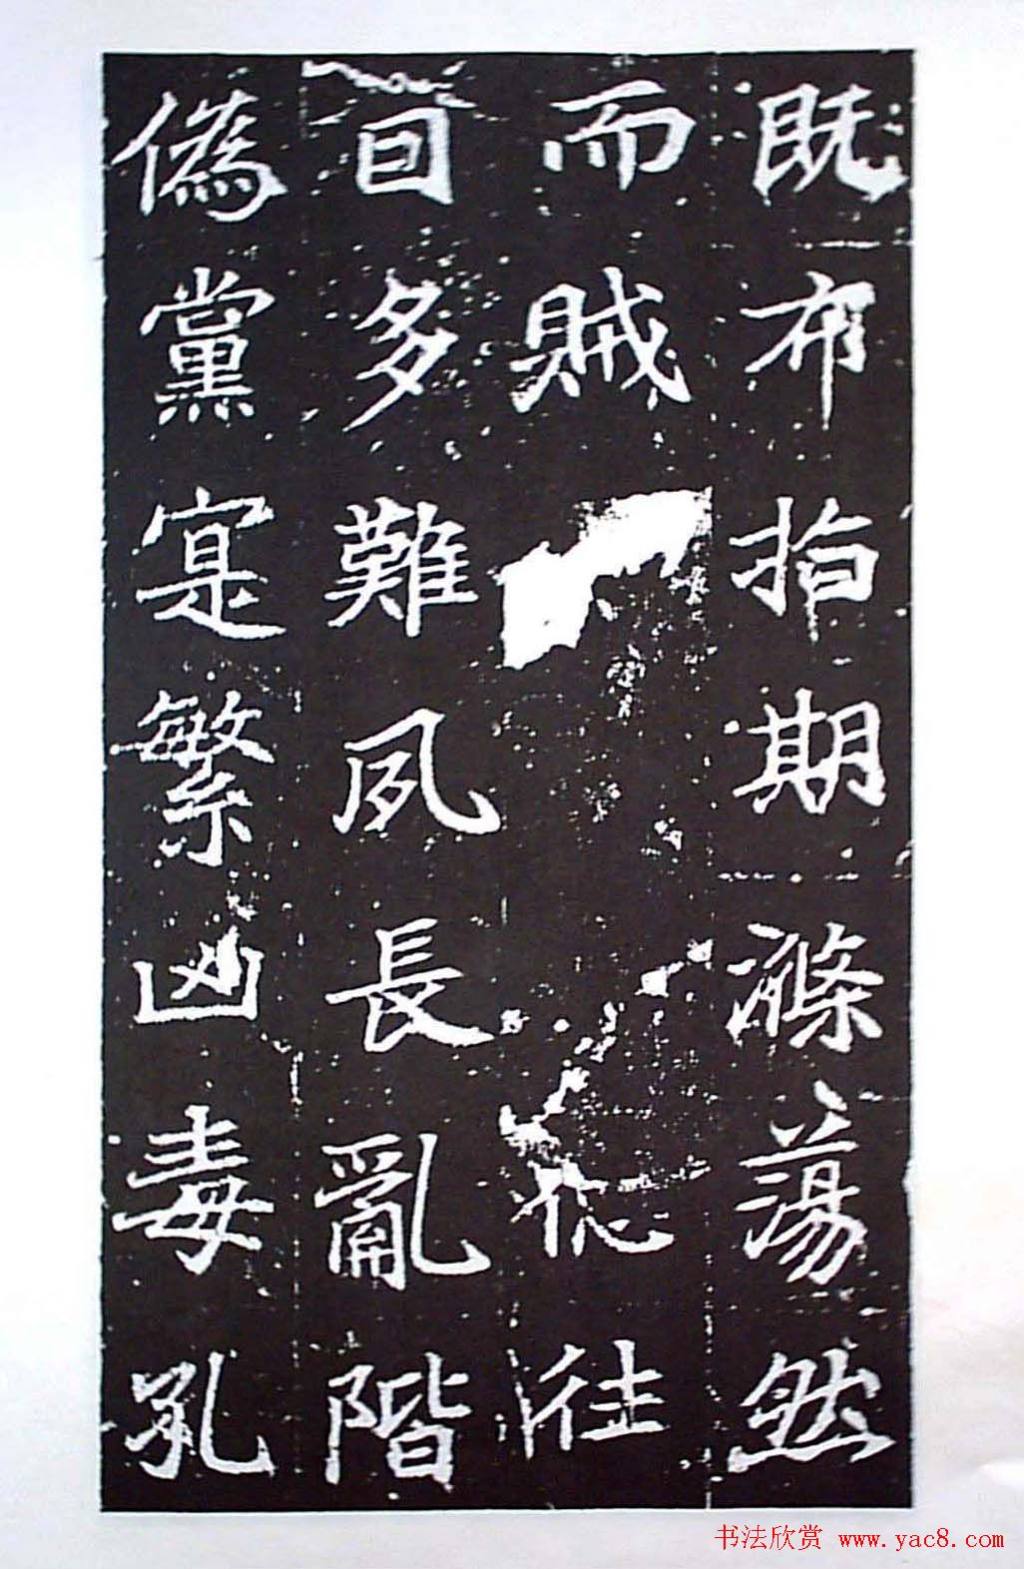 既布指期滌蕩然
而賊往
囙多難夙長亂階
偽黨寔繁凶毒孔
书法欣赏 www.yac8.com